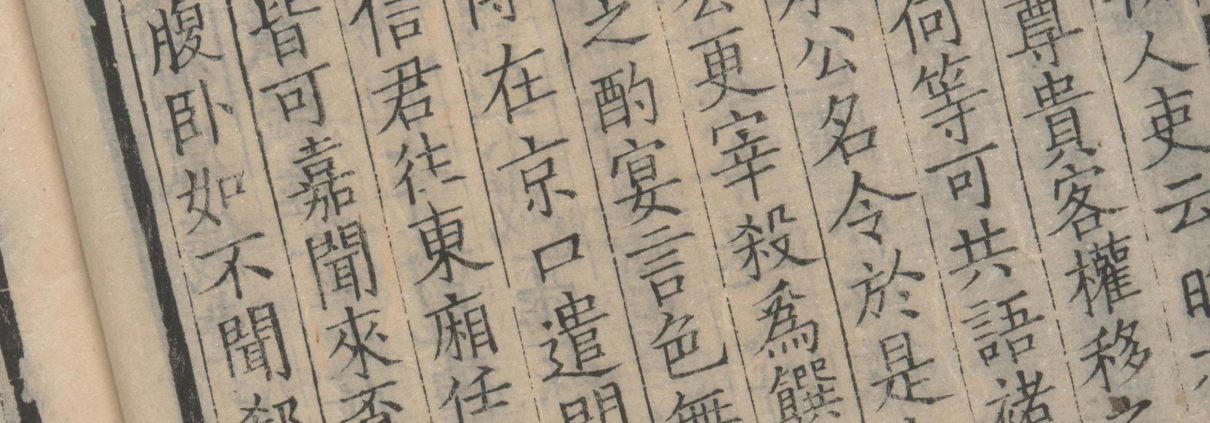 人吏云昨
尊貴客權移之
何等可共語褚
承公名令於是
公更宰殺為饌
之酌宴言色無
在京口遣門
信君往東廂任
皆可嘉聞來覔
腹卧如不聞郗